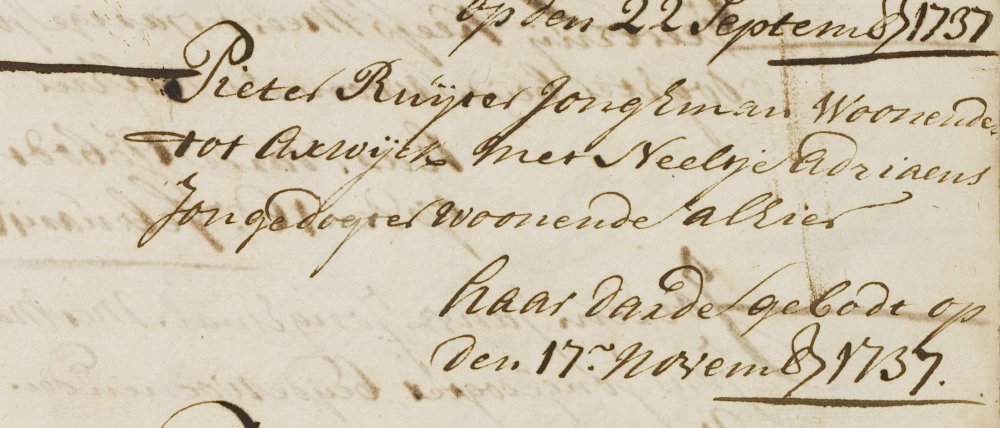 op den 22 Septemb 1737
Pieter Ruÿter Jongkman Woonende
tot Axwijck met Neeltje Adriaens
Jongedogter woonende alhier
haar darde gebodt op
den 17en Novemb 1737.